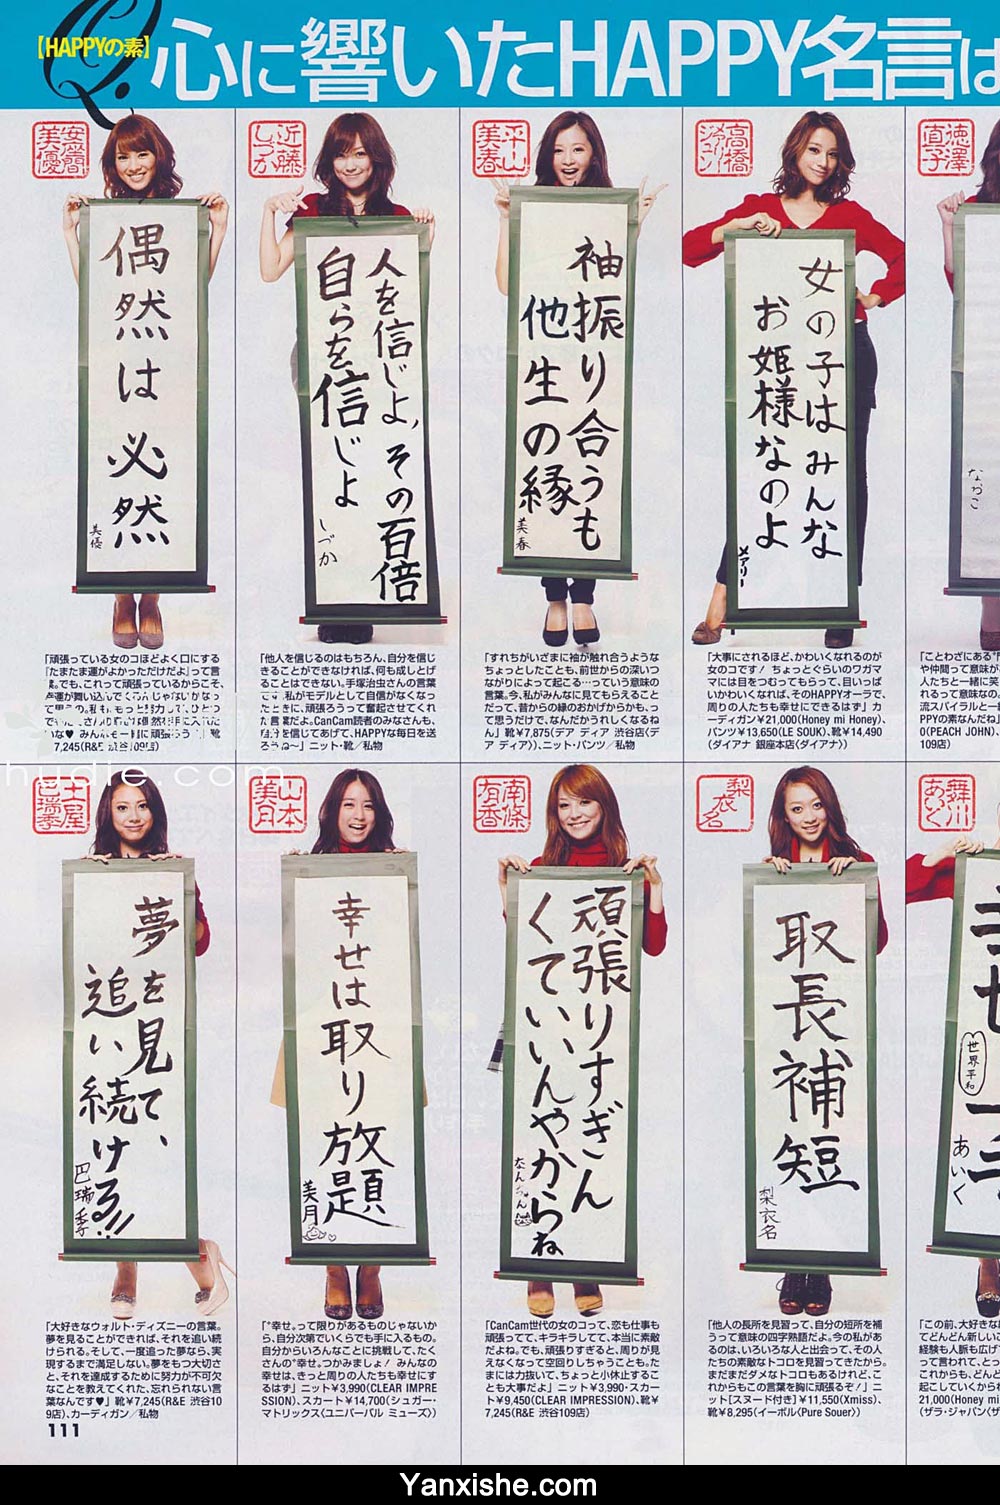 【HAPPYの素】
Q. 心に響いたHAPPY名言は
安座間
美優
偶然は必然
美優
「頑張っている女のコほどよく口にする
“たまたま運がよかっただけだよ”って言
近藤
しづか
人を信じよ、その百倍
自らを信じよ
しづか
「他人を信じるのはもちろん、自分を信じ
きることができなければ、何も成しとげ
ることはできない。手塚治虫さんの言葉
で、私がモデルとして自信がなくなっ
たときに、頑張ろうって奮起させてくれ
た言葉だよ。CanCam読者のみなさんも、
自分を信じてあげて、HAPPYな毎日を送
ろうね〜」ニット・靴／私物
平山
美春
袖振り合うも
他生の縁
美春
「すれちがいざまに袖が触れ合うような
ちょっとしたことも、前世からの深いつ
ながりによって起こる…っていう意味の
言葉。今、私がみんなに見てもらえること
だって、昔からの縁のおかげからかも、っ
て思うだけで、なんだかうれしくなるね
ん」靴¥7,875(デア ディア 渋谷店〈デ
ア ディア〉)、ニット・パンツ／私物
高橋
メアリージュン
女の子はみんな
お姫様なのよ
メアリー
「大事にされるほど、かわいくなれるのが
女のコです！ ちょっとぐらいのワガマ
マには目をつむってもらって、目いっぱ
いかわいくなれば、そのHAPPYオーラで、
周りの人たちも幸せにできるはず」カ
ーディガン¥21,000(Honey mi Honey)、
パンツ¥13,650(LE SOUK)、靴¥14,490
(ダイアナ 銀座本店〈ダイアナ〉)
徳澤
直子
なおこ
土屋
巴瑞季
夢を見て、
追い続ける!!
巴瑞季
「大好きなウォルト・ディズニーの言葉。
夢を見ることができれば、それを追い続
けられる。そして、一度追った夢なら、実
現するまで満足しない。夢をもつ大切さ
と、それを達成するために努力が不可欠
なことを教えてくれた、忘れられない言
葉なんです♥」靴¥7,245(R&E 渋谷10
9店)、カーディガン／私物
山本
美月
幸せは取り放題
美月
「“幸せ”って限りがあるものじゃないか
ら、自分次第でいくらでも手に入るもの。
自分からいろんなことに挑戦して、たく
さんの“幸せ”つかみましょ！ みんなの
幸せは、きっと周りの人たちも幸せにす
るはず」ニット¥3,990(CLEAR IMPRE
SSION)、スカート¥14,700(シュガー・
マトリックス〈ユニバーバル ミューズ〉)
南條
有香
頑張りすぎん
くていいんやからね
なんちゃん
「CanCam世代の女のコって、恋も仕事も
頑張ってて、キラキラしてて、本当に素敵
だよね。でも、頑張りすぎると、周りが見
えなくなって空回りしちゃうことも。た
まには力抜いて、ちょっと小休止するこ
とも大事だよ」ニット¥3,990・スカー
ト¥9,450(CLEAR IMPRESSION)、靴¥
7,245(R&E 渋谷109店)
梨衣名
取長補短
梨衣名
「他人の長所を見習って、自分の短所を補
うって意味の四字熟語だよ。今の私があ
るのは、いろいろな人と出会って、その人
たちの素敵なトコロを見習ってきたから。
まだまだダメなトコロもあるけれど、こ
れからもこの言葉を胸に頑張るぞ！」ニ
ット[スヌード付き]¥11,550(Xmiss)、
靴¥8,295(イーボル〈Pure Souer〉)
舞川
あいく
世界平和
あいく
111
Yanxishe.com